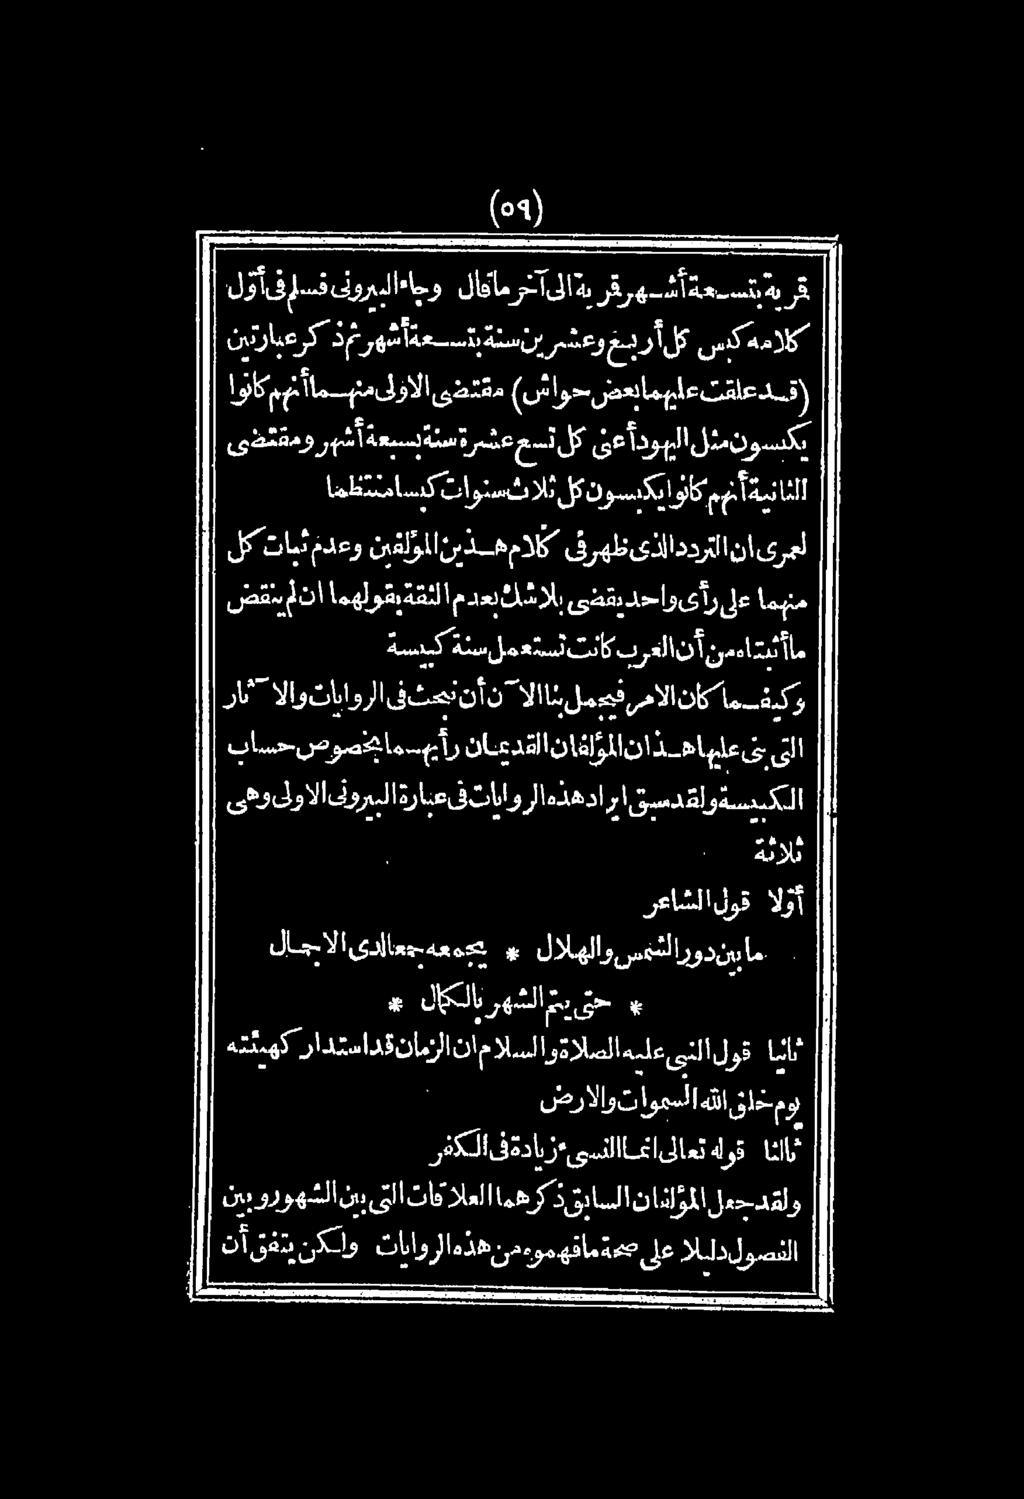 (٥٩)
قرية بتسعة أشهر قرية الى آخر ماقال وجاء البيرونى فسلم فى أوّل
كلامه كبس كل أربع وعشرين سنة بتسعة أشهر ثم ذكر عبارتين
(قد علقت عليهما بعض حواش) مقتضى الاولى منهما أنهم كانوا
يكبسون مثل اليهود أعنى كل تسع عشرة سنة بسبعة أشهر ومقتضى
الثانية أنهم كانوا يكبسون كل ثلاث سنوات كبسا منتظما
لعمرى ان التردد الذى ظهر فى كلام هذين المؤلفين وعدم ثبات كل
منهما على رأى واحد يقضى بلاشك بعدم الثقة بقولهما ان لم ينقض
ما أثبتاه من أن العرب كانت تستعمل سنة كبيسة
وكيفما كان الامر فيجمل بنا الآن أن نبحث فى الروايات والآثار
التى بنى عليها هذان المؤلفان القديمان رأيهما بخصوص حساب
الكبيسة ولقد سبق ايراد هذه الروايات فى عبارة البيرونى الاولى وهى
ثلاثة
أوّلا قول الشاعر
ما بين دور الشمس والهلال * يجمعه جمعا لدى الاجمال
* حتى يتم الشهر بالكمال *
ثانيا قول النبى عليه الصلاة والسلام ان الزمان قد استدار كهيئته
يوم خلق الله السموات والارض
ثالثا قوله تعالى انما النسىء زيادة فى الكفر
ولقد جعل المؤلفان السابق ذكرهما العلاقات التى بين الشهور وبين
الفصول دليلا على صحة مافهموه من هذه الروايات ولكن يتفق أن